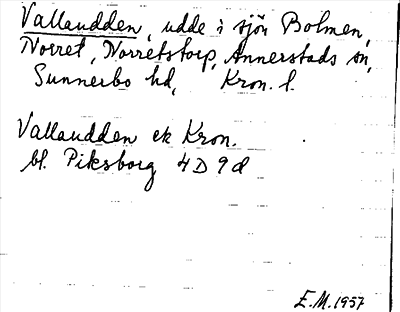 Vallaudden, udde i sjön Bolmen,
Norret, Norretstorp, Annerstads sn,
Sunnerbo hd, Kron. l.
Vallaudden ek Kron.
bl. Piksborg 4D 9d
E.M. 1957